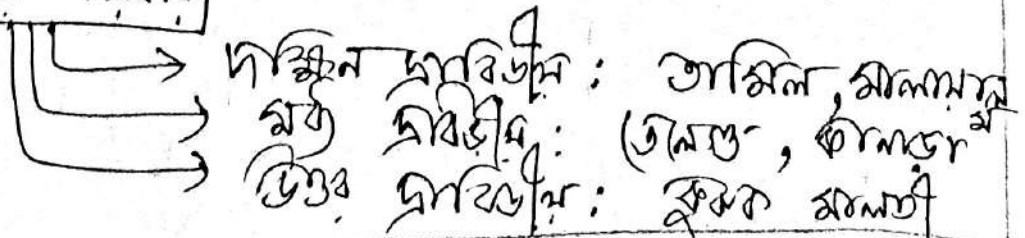 দাক্ষিন দ্রাবিড়ীয় : তামিল, মালায়ালম
মধ্য দ্রাবিড়ীয় : তেলেগু, কানাড়া
উত্তর দ্রাবিড়ীয় : কুরুক মালতী